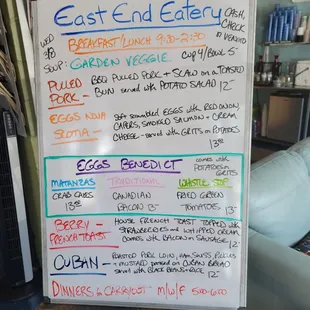 East End Eatery
CASH,
CHECK
or VENMO
WED
7/8
BREAKFAST/LUNCH 9:30-2:30
SOUP: GARDEN VEGGIE CUP 4/BOWL 5
PULLED PORK - BBQ PULLED PORK + SLAW on a TOASTED
BUN served with POTATO SALAD 12
EGGS NOVA SCOTIA - Soft scrambled EGGS with RED ONION
CAPERS, SMOKED SALMON + CREAM
CHEESE - served with GRITS or POTATOES
13.50
EGGS BENEDICT comes with
POTATOES or
GRITS
MATANZAS TRADITIONAL WHISTLE STOP
CRAB CAKES CANADIAN FRIED GREEN
13.50 BACON 13 TOMATOES 13
BERRY FRENCH TOAST - HOUSE FRENCH TOAST TOPPED with
STRAWBERRIES and WHIPPED CREAM
comes with BACON or SAUSAGE 12
CUBAN - ROASTED PORK LOIN, HAM, SWISS, PICKLES
+ MUSTARD pressed on CUBAN BREAD
served with BLACK BEANS + RICE 12
DINNERS to CARRYOUT - M/W/F 5:00-6:00